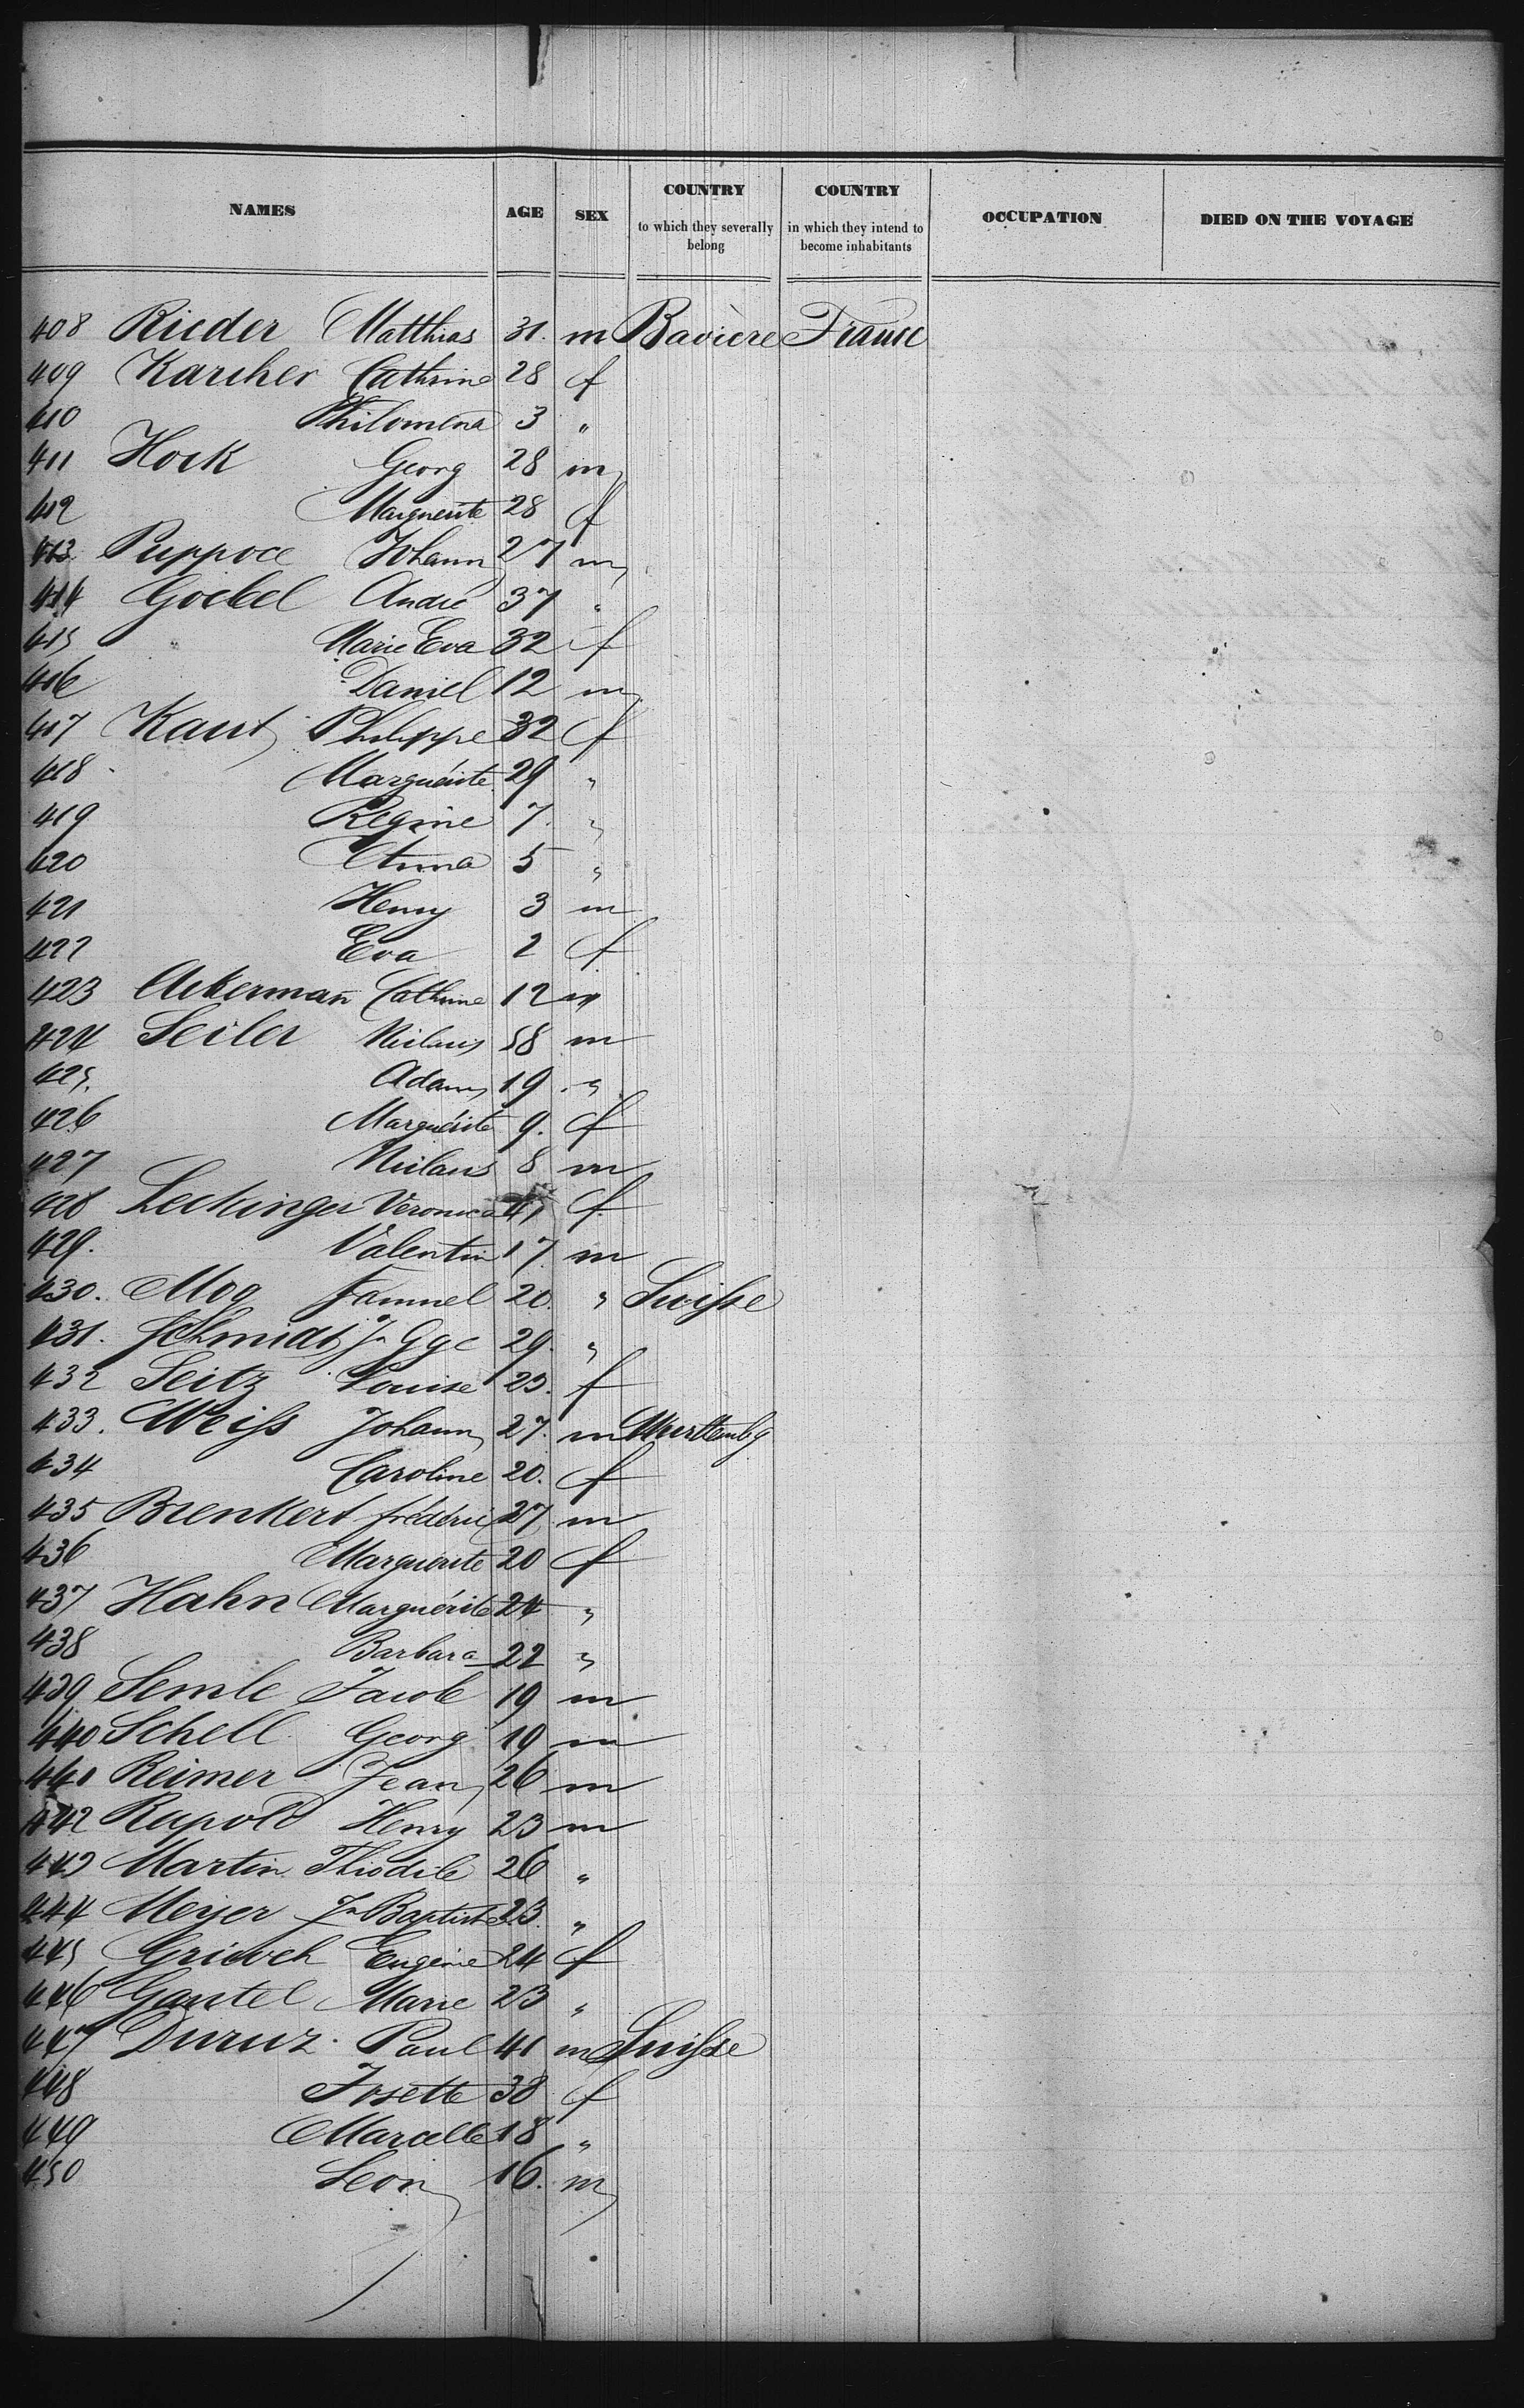 NAMES AGE SEX COUNTRY to which they severally belong COUNTRY in which they intend to become inhabitants OCCUPATION DIED ON THE VOYAGE
408 Rieder Matthias 31. m Bavière France
409 Karcher Cathrine 28 f
410 Philomena 3 "
411 Hock Georg 28 m
412 Marguerite 28 f
413 Puppoce Johann 27 m
414 Goebel André 37 "
415 Marie Eva 32 f
416 Daniel 12 m
417 Kaut Philippe 32 f
418 Marguérite 29 "
419 Regine 7. "
420 Anna 5 "
421 Henry 3 m
422 Eva 2 f
423 Ackerman Cathrine 12 m
424 Seiler Niclaus 58 m
425. Adam 19 "
426 Marguérite 9. f
427 Niclaus 8 m
428 Leckinger Veronica 41 f
429. Valentin 17. m
430. Mog Samuel 20. " Suisse
431. Schmidt Jn Gge 29. "
432 Seitz Louise 25. f
433. Weiss Johann 27. m Wurttembg
434 Caroline 20. f
435 Brenkert frédéric 27 m
436 Marguerite 20 f
437 Hahn Marguérite 24 "
438 Barbara 22 "
439 Semle Jacob 19 m
440 Schell Georg 19 m
441 Reimer Jean 26 m
442 Rupold Henry 23 m
443 Martin 26 "
444 Meyer Jn Baptiste 23. "
445 Eugenie 24 f
446 Gantel Marie 23 "
447 Duruz Paul 41 m Suisse
448 Josette 38 f
449 Marcelle 18 "
450 Leon 16. m